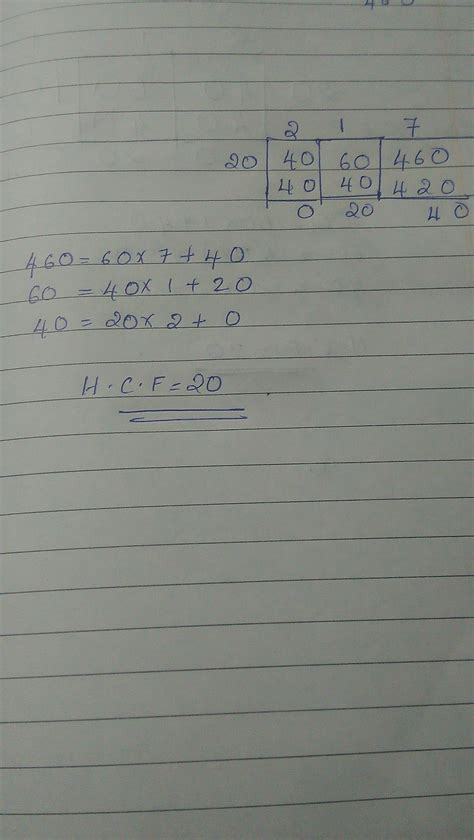 2 1 7
20 40 60 460
40 40 420
0 20 40
460 = 60 x 7 + 40
60 = 40 x 1 + 20
40 = 20 x 2 + 0
H.C.F = 20